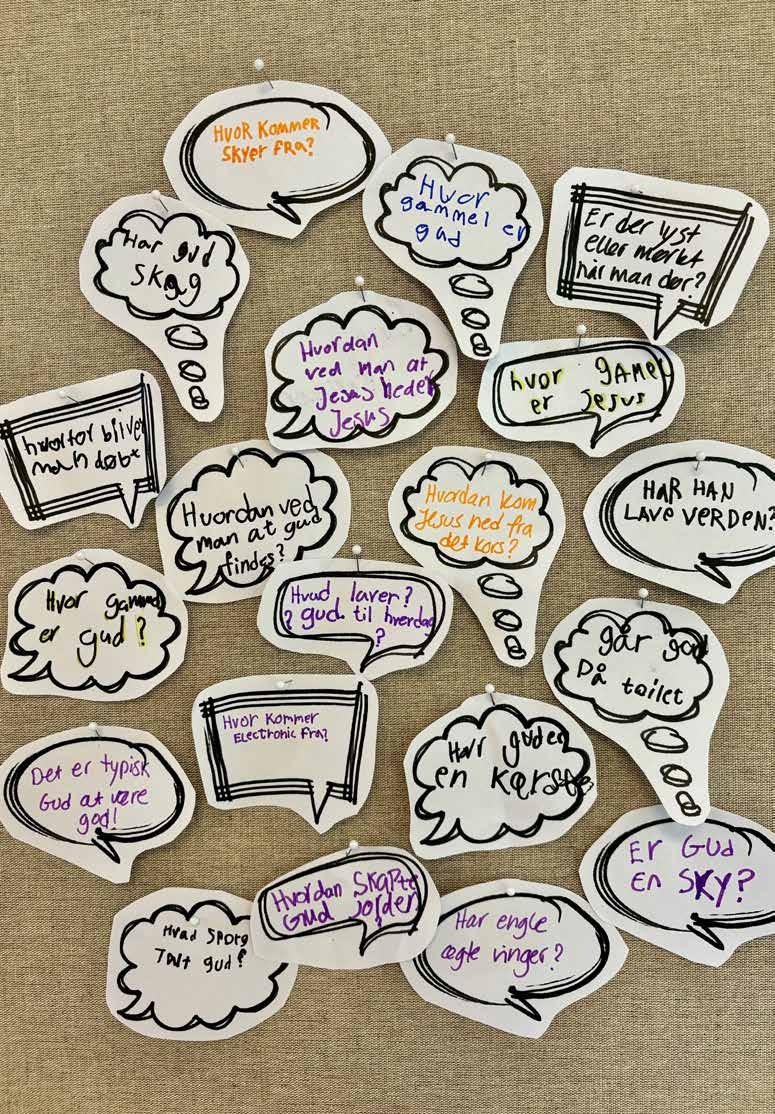 HVOR KOMMER
SKYER FRA?
Hvor
gammel er
gud
Er der lyst
eller mørkt
når man dør?
Har gud
skæg
Hvordan
ved man at
Jesus heder
Jesus
hvor GAMEL
er Jesus
hvorfor bliver
man døbt
Hvordan ved
man at gud
findes?
Hvordan kom
Jesus ned fra
det kors?
HAR HAN
LAVE VERDEN?
Hvor gammel
er gud?
Hvad laver?
? gud til hverdag
?
går gud
På toilet
Hvor kommer
Electronic fra?
Harr guden
en kærste
Det er typisk
Gud at være
god!
Er Gud
en SKY?
Hvordan SKAPte
GUD jorden
Har engle
ægte vinger?
Hvad
gud?